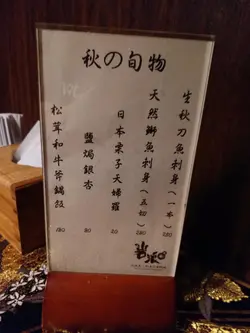 秋の旬物
生秋刀魚刺身(一本) 280
天然鰤魚刺身(五切) 280
日本栗子天婦羅
鹽焗銀杏 80
松茸和牛釜鍋飯 180